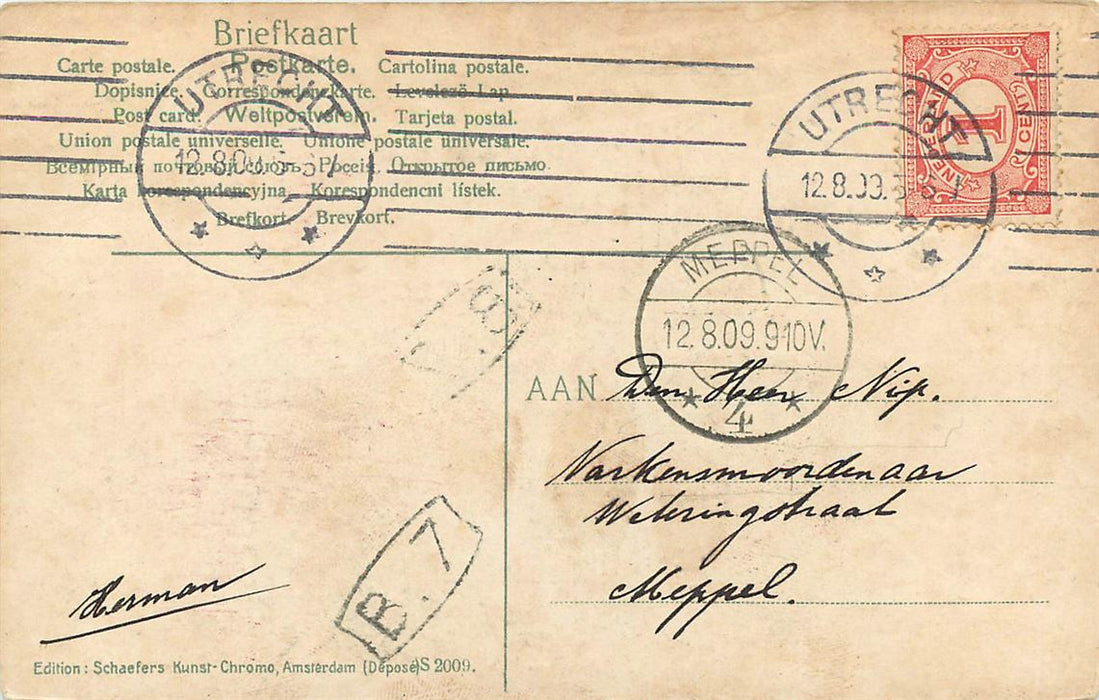 Briefkaart
Carte postale. Postkarte. Cartolina postale.
Dopisnice. Correspondenzkarte. Levelező-Lap
Post card. Weltpostverein. Tarjeta postal.
Union postale universelle. Unione postale universale.
Всемірный почтовый союзъ. Россія. Открытое письмо.
Karta korespondencyjna. Korespondencni lístek.
Brefkort. Brevkort.
UTRECHT
12.8.09.
UTRECHT
12.8.09.
NEDERLAND
1
1 CENT
MEPPEL
12.8.09.9-10V.
4
AAN Den Heer Nip.
Varkensmoordenaar
Weteringstraat
Meppel.
B. 7
Herman
Edition: Schaefers Kunst-Chromo, Amsterdam (Déposé) S 2009.